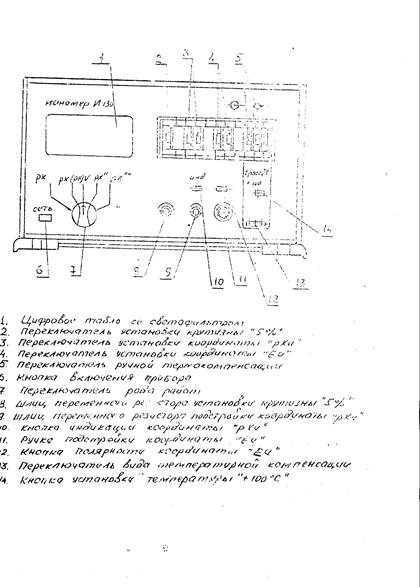 1
2
3
4
5
иономер И130
инд
рХ рХ(рН)V рХ' рХ"
сеть
6
7
8
9
10
11
12
13
14
1. Цифровое табло со светофильтром
2. Переключатель установки крутизны "S%"
3. Переключатель установки координаты "рХи"
4. Переключатель установки координаты "Еи"
5 Переключатель ручной термокомпенсации
6. Кнопка включения прибора
7. Переключатель рода работ
8. Шлиц переменного ре стора установки крутизны "S%"
9. Шлиц переменного резистора подстройки координаты "рХи"
0. Кнопка индикации координаты "рХи"
11. Ручка подстройки координаты "Еи"
2. Кнопка полярности координаты "Еи"
13. Переключатель вида температурной компенсации
14. Кнопка установки температуры "+100°С"